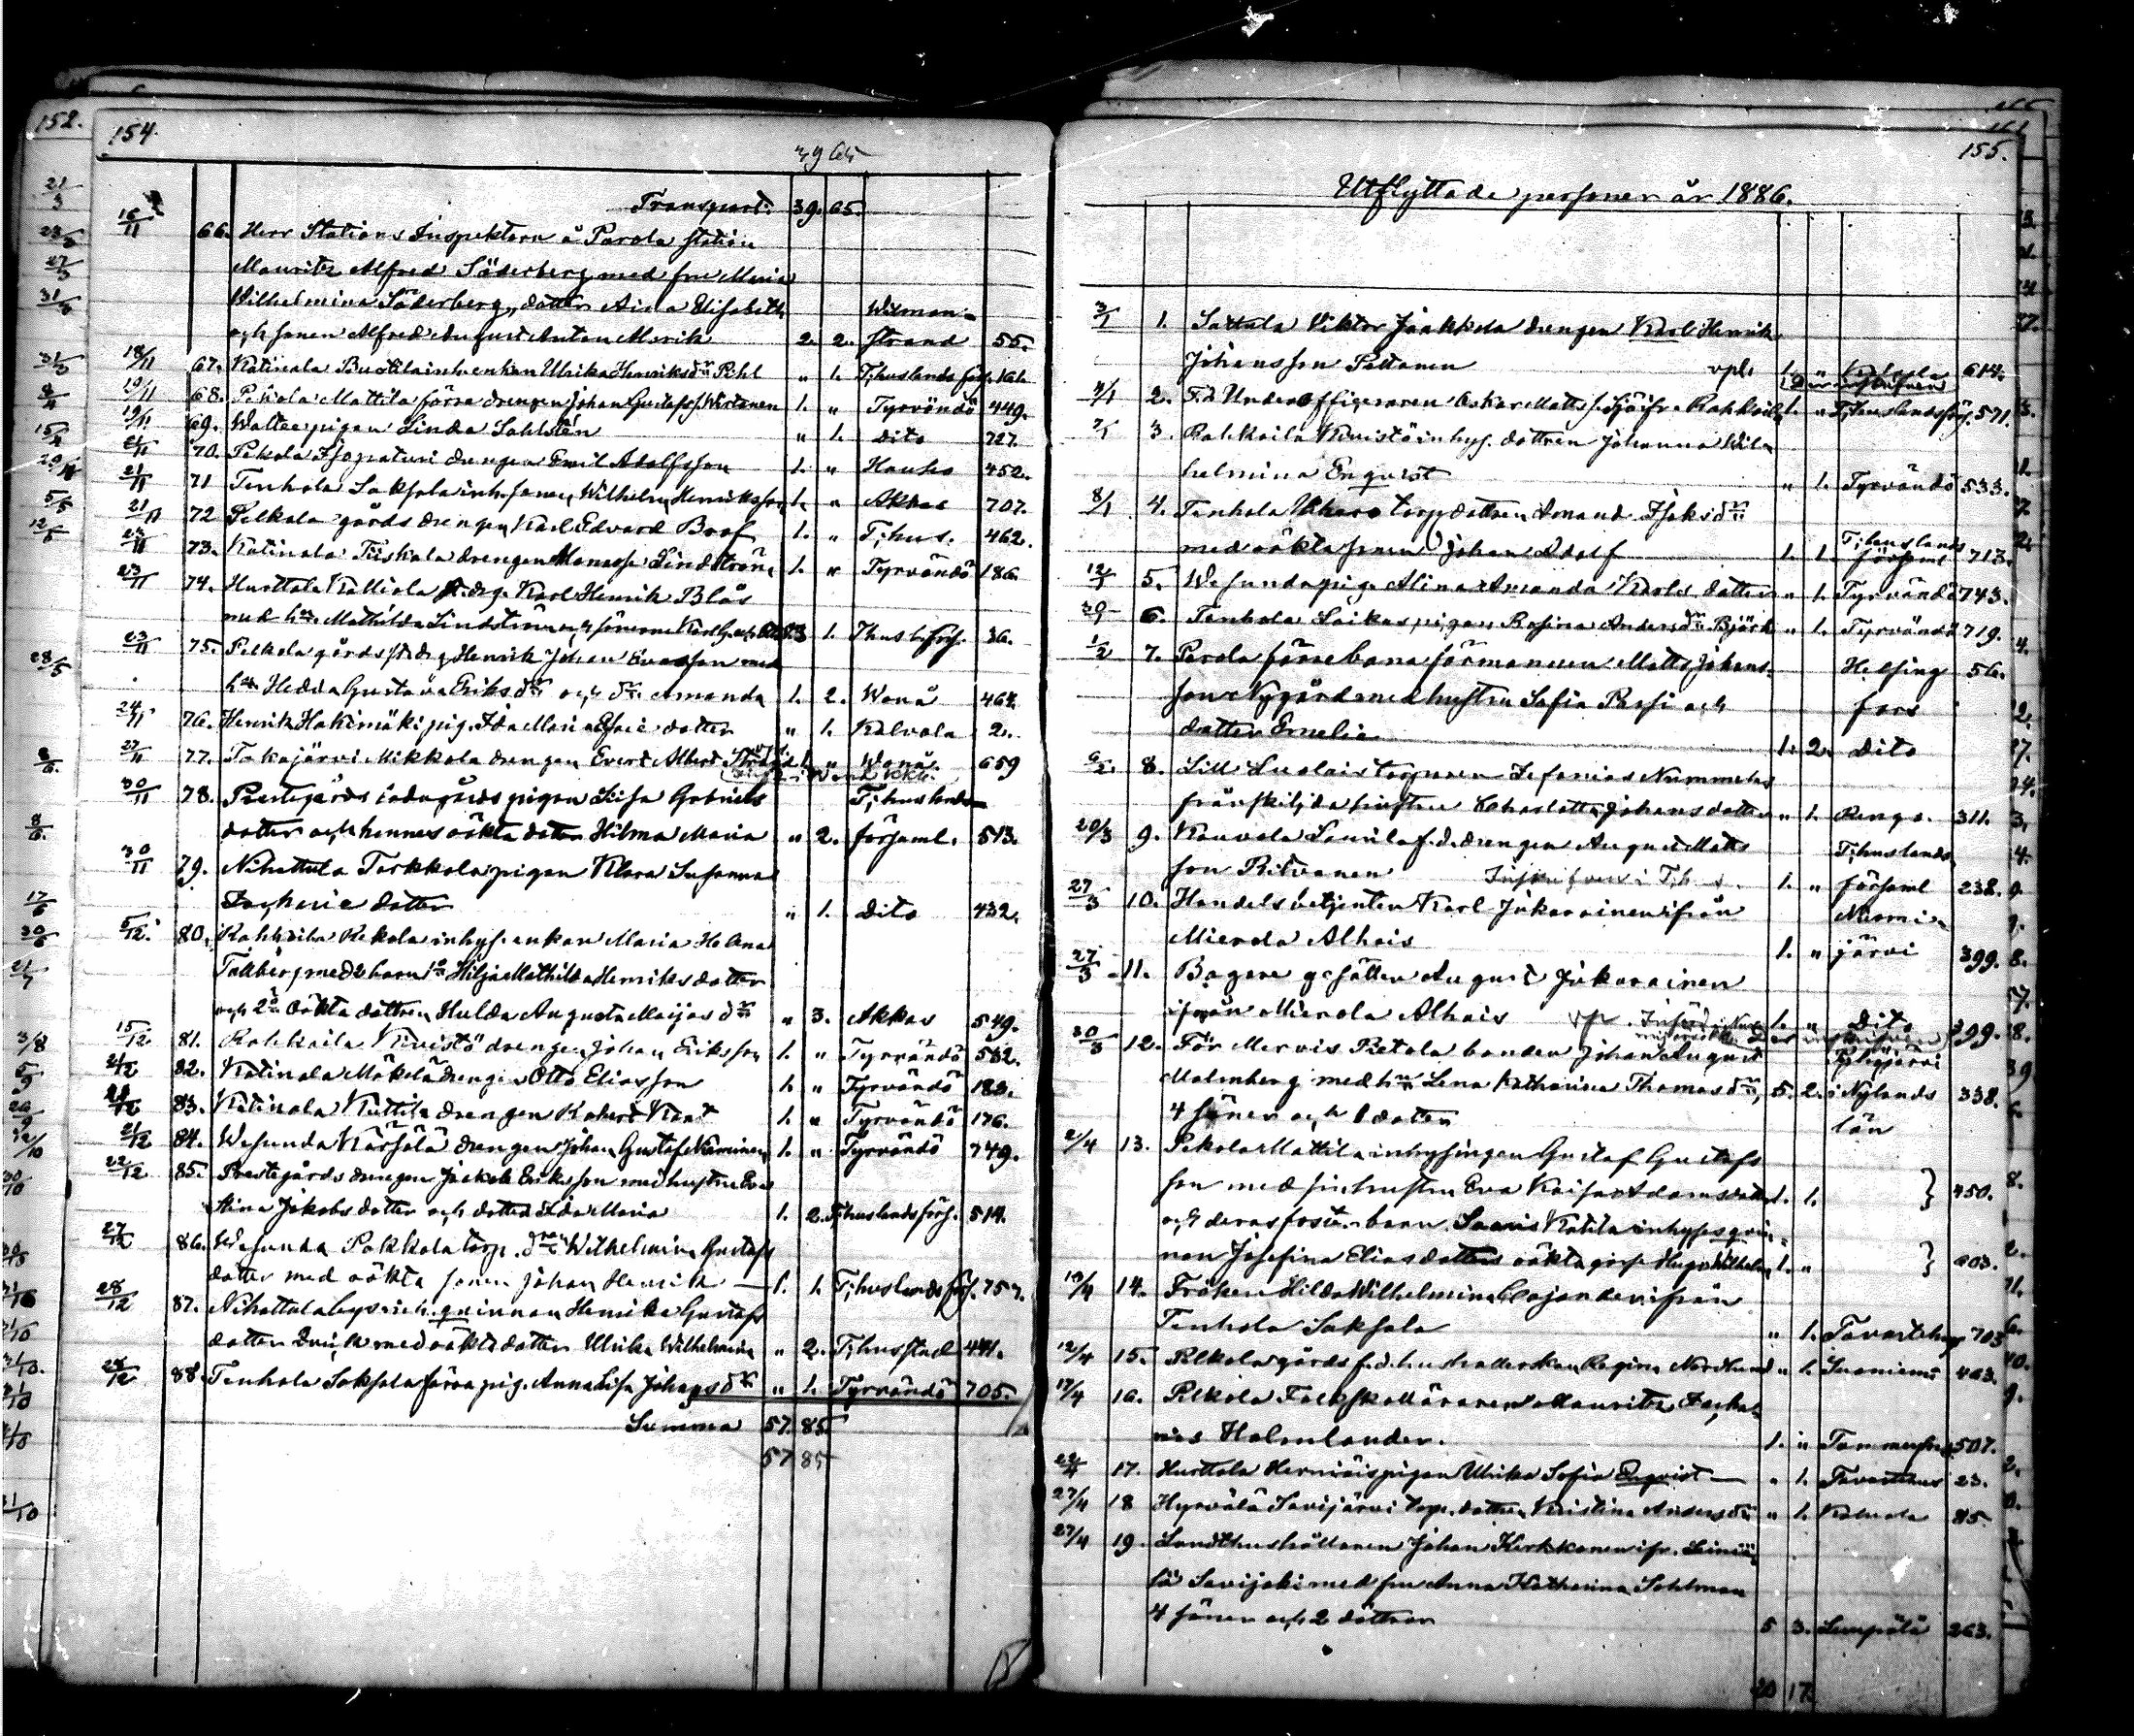 154.
39 65
Transport. 39. 65.
16/11 66. Herr Stations Inspektorn å Parola station
Mauritz Alfred Söderberg med fru Maria
Wilhelmina Söderberg, dotter Aina Elisabeth Wilman-
och sonen Alfred August Anton Marik 2. 2. strand 55.
18/11 67. Katinala inh. enkan Ulrika Henriksdr Pihl " 1. T:huslands förs. 161.
19/11 68. Pekola Mattila förre drengen Johan Gustafss. Wirtanen 1. " Tyrvändö 449.
19/11 69. pigan Linda Sahlstén " 1. Dito 727.
21/11 70. Pekola drengen Emil Adolfsson 1. " Hauho 452.
21/11 71 Tenhola Saksala inh. sonen Wilhelm Henriksson 1. " Akkas 707.
21/11 72 Pelkola gårds drengen Karl Edvard Boof 1. " T:hus. 462.
23/11 73. Katinala Tiiskala drengen Manasse Lindström 1. " Tyrvändö 186.
23/11 74. Hurttala Kalliola drg. Karl Henrik Blås
med h:u Mathilda Lindström och sönerne Karl 3 1. T:hus l. förs. 36.
23/11 75. Pelkola gårds drg Henrik Johan Evasson med
h:u Hedda Gustava Eriksdr och dr Amanda 1. 2. Wanå 464.
24/11 76. Henrik Hakimäki pig. Ida Maria dotter " 1. Kalvola 2.
27/11 77. Takajärvi Mikkola drengen Evert Albert Strand 1. " Wanå. 659
30/11 78. Prestegårds ladugårds pigan Lisa Gabriels T:huslands
dotter och hennes oäkta dotter Hilma Maria " 2. församl. 513.
30/11 79. Nihattula Torkkola pigan Klara Susanna
Zacharie dotter " 1. Dito 432.
5/12. 80. Rahkoila Rekola inhys. enkan Maria Helena
med 2 barn 1o Hilja Mathilda Henriks dotter
och 2o oäkta dottren Hulda Augusta Maijas dr " 3. Akkas 549.
15/12. 81. Rahkoila Knuistö drengen Johan Eriksson 1. " Tyrvändö 532.
21/12 82. Katinala Mäkelä drengen Otto Eliasson 1. " Tyrvändö 183.
21/12 83. Katinala Kuttila drengen Robert 1. " Tyrvändö 176.
21/12 84. Wesunda Kärsälä drengen Johan Gustaf Karminen 1. " Tyrvändö 749.
22/12. 85. Prestegårds drengen Jackob Eriksson med hustru Eva
Stina Jakobs dotter och dotter Ida Maria 1. 2. T:huslands förs. 514.
27/12 86. Wesunda Pokkola torp. dr Wilhelmina Gustafs
dotter med oäkta sonen Johan Henrik 1. 1. T:huslands förs. 757.
28/12 87. Nihattula qvinnan Henrika Gustafs
dotter med oäkta dotter Ulrika Wilhelmina " 2. T:hus stad 441.
28/12 88. Tenhola Saksala förra pig. Anna Lisa Johans dr " 1. Tyrvändö 705.
Summa 57. 85
57 85
155.
Utflyttade personer år 1886.
3/1 1. Sattula Viktor Jaakkola drengen Karl Henrik
Johansson Paltanen 1. " 614.
4/1 2. F.d. Underofficeraren Oskar Matts s. Sjö ifr. Rahkoila 1. " T:huslands förs. 571.
7/1 3. Rahkoila Knuistö inhys. dottren Johanna Wil-
helmina Enqvist " 1. Tyrvändö 533.
8/1 4. Tenhola torp. dottren Amand. Isaksdr T:huslands
med oäkta sonen Johan Adolf 1. 1. församl 713.
12/1 5. Wesunda pig. Alina Amanda Karls dotter " 1. Tyrvändö 743.
30 6. Tenhola Laikas pigan Rosina Andersdr Björk " 1. Tyrvändö 719.
1/2 7. Parola förre banaförmannen Matts Johans- Helsing 56.
son Nygård med hustru Sofia och fors
dotter Emelie 1. 2. Dito
6/2. 8. Lill Luolais torparen Zefanias Nummelas
frånskiljda hustru Charlotta Johans dotter " 1. Renga. 311.
20/3 9. Kouvola Saurila f.d. drengen August Matts T:huslands
son Ritvanen Inskrifven i T:h. 1. " församl 238.
27/3 10. Handels betjenten Karl Jukarainen ifrån Nurmi-
Mierola Alhais 1. " järvi 399.
27/3 11. Bagare gesällen August Jukarainen
ifrån Mierola Alhais 1. " Dito 399.
30/3 12. För Mervis Pietola bonden Johan August
Malmberg med h:u Lena Katharina Thomas dr, 5. 2. i Nylands 338.
4 söner och 1 dotter län
2/4 13. Pekola Mattila inhysingen Gustaf Gustafs
son med sin hustru Eva Kaisa Adams dotter 1. 1. } 450.
och deras foster barn. Saaris Katila inhyses qvin-
nan Josefina Elias dotters oäkta gosse Hugo Wilhelm 1. " } 603.
10/4 14. Fröken Hilda Wilhelmina Cajander ifrån
Tenhola Saksala " 1. Tavastehus 703
12/4 15. Pelkola gårds f.d. hushållerskan Regina Nordlund " 1. Suoniemi 463.
17/4 16. Pelkola Folkskolläraren Mauritz Zacha-
rias Holmlander. 1. " Tammerfors 507.
22/4 17. Hurttala pigan Ulrika Sofia Enqvist " 1. Tavastehus 23.
27/4 18 Hyrvälä Savijärvi torp. dotter Kristina Anders dr " 1. Kalvola 85.
27/4 19. Landthushållaren Johan Kirkkanen ifr. Leiniä-
lä Savijoki med fru Anna Katharina Sohlman
4 söner och 2 döttrar 5 3. Lempälä 263.
20 17.